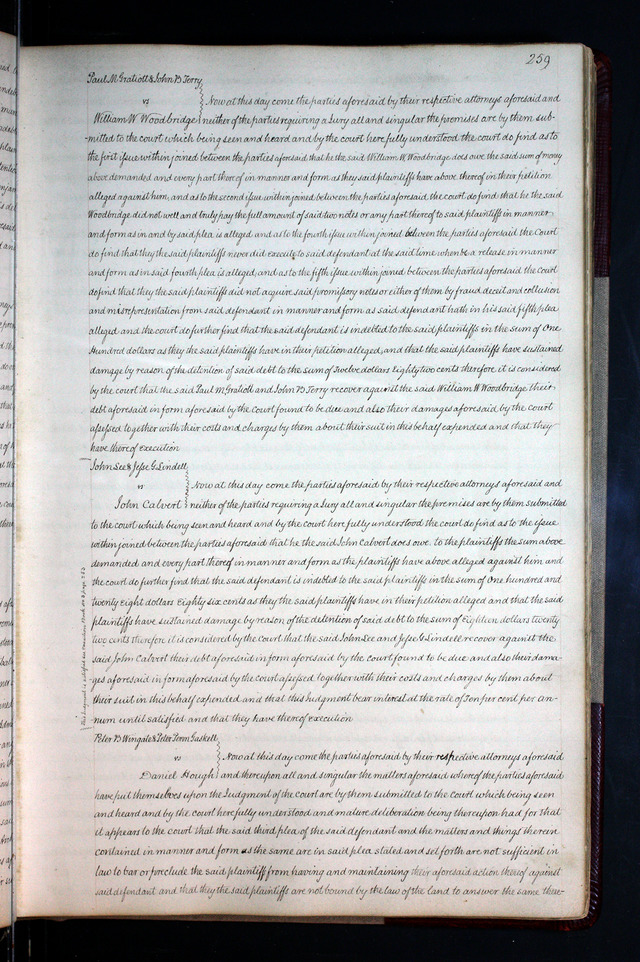 259
Paul M Gratiott & John B Terry
vs Now at this day come the parties aforesaid by their respective attorneys aforesaid and
William W Woodbridge neither of the parties requiring a Jury all and singular the premises are by them sub-
-mitted to the court which being seen and heard and by the court here fully understood the court do find as to
the first issue within joined between the parties aforesaid that he the said William W. Woodbridge does owe the said sum of money
above demanded and every part thereof in manner and form as they said plaintiffs have above thereof in their petition
alleged against him, and as to the second issue within joined between the parties aforesaid, the court do find that he the said
Woodbridge did not well and truly pay the full amount of said two notes or any part thereof to said plaintiffs in manner
and form as in and by said plea is alleged and as to the fourth issue within joined between the parties aforesaid the Court
do find that they the said plaintiffs never did execute to said defendant at the said time when &c a release in manner
and form as in said fourth plea is alleged, and as to the fifth issue within joined between the parties aforesaid the Court
do find that they the said plaintiffs did not acquire said promissory notes or either of them by fraud, deceit and collusion
and misrepresentation from said defendant in manner and form as said defendant hath in his said fifth plea
alleged and the court do further find that the said defendant is indebted to the said plaintiffs in the sum of One
Hundred dollars as they the said plaintiffs have in their petition alleged, and that the said plaintiffs have sustained
damage by reason of the ditention of said debt to the sum of Twelve dollars Eighty two cents therefore it is considered
by the court that the said Paul M Gratiott and John B Terry recover against the said William W Woodbridge their
debt aforesaid in form aforesaid by the court found to be due and also their damages aforesaid by the court
assessed together with their costs and charges by them about their suit in this behalf expended and that they
have thereof execution
John Lee & Jesse G. Lindell
vs Now at this day come the parties aforesaid by their respective attorneys aforesaid and
John Calvert neither of the parties requiring a Jury all and singular the premises are by them submitted
to the court which being seen and heard and by the court here fully understood the court do find as to the issue
within joined between the parties aforesaid that he the said John Calvert does owe to the plaintiffs the sum above
demanded and every part thereof in manner and form as the plaintiffs have above alleged against him and
the court do further find that the said defendant is indebted to the said plaintiffs in the sum of One hundred and
twenty Eight dollars Eighty six cents as they the said plaintiffs have in their petition alleged and that the said
plaintiffs have sustained damage by reason of the detention of said debt to the sum of Eighteen dollars twenty
two cents therefore it is considered by the Court that the said John Lee and Jesse G Lindell recover against the
said John Calvert their debt aforesaid in form aforesaid by the court found to be due and also their dama-
ges aforesaid in form aforesaid by the court assessed together with their costs and charges by them about
their suit in this behalf expended and that this Judgment bear interest at the rate of Ten per cent per an-
num until satisfied and that they have thereof execution
Peter B Wingate & Peter Penn Gaskell
vs Now at this day come the parties aforesaid by their respective attorneys aforesaid
Daniel Hough and thereupon all and singular the matters aforesaid whereof the parties aforesaid
have put themselves upon the Judgment of the Court are by them submitted to the Court which being seen
and heard and by the court here fully understood and mature deliberation being thereupon had for that
it appears to the court that the said third plea of the said defendant and the matters and things therein
contained in manner and form as the same are in said plea stated and set forth are not sufficient in
law to bar or preclude the said plaintiff from having and maintaining their aforesaid action thereof against
said defendant and that they the said plaintiffs are not bound by the law of the land to answer the same there-